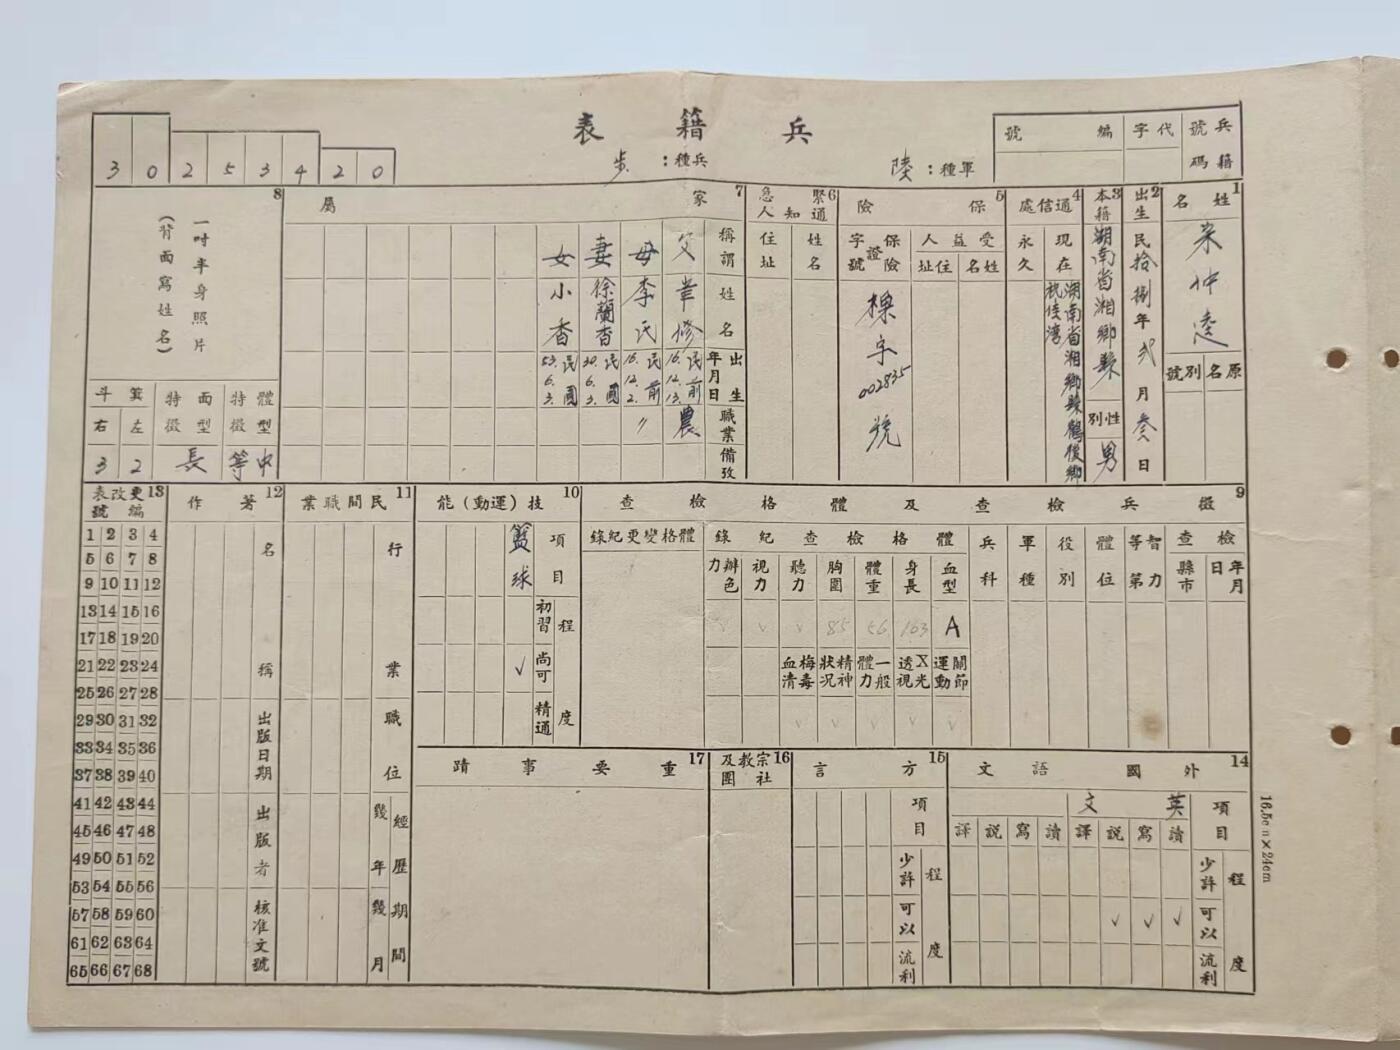 兵籍表
軍種：陸
兵種：步
30253420
兵籍號碼
代字
編號
1 姓名
仲逵
原名 別號
2 出生
民拾捌年弍月叁日
3 本籍
湖南省湘鄉縣
性別
男
4 通信處
現在
湖南省湘鄉縣鶴後鄉
永久
5 保險
受益人
姓名 住址
保險證字號
字002835號
6 緊急通知人
姓名
住址
7 家屬
稱謂 父 母 妻 女
姓名 李氏 徐蘭香 小香
出生年月日
民前16.12.13.
民前16.12.2.
民國30.6.3.
民國53.6.3.
職業 農 〃
備攷
8
一吋半身照片
（背面寫姓名）
體型特徵 中等
面型特徵 長
箕斗
左 2
右 3
9 徵兵檢查及體格檢查
檢查
年月日
縣市
智力等第
體位
役別
軍種
兵科
體格檢查紀錄
血型 身長 體重 胸圍 聽力 視力 辦色力
A 163 56 85 √ √ √
關節運動 X光透視 一般體力 精神狀況 梅毒血清
√ √ √ √
體格變更紀錄
10 技（運動）能
項目 籃球
程度
初習
尚可 √
精通
11 民間職業
行業
職位
經歷期間
幾年幾月
12 著作
名稱
出版日期
出版者
核准文號
13 更改表編號
1 2 3 4
5 6 7 8
9 10 11 12
13 14 15 16
17 18 19 20
21 22 23 24
25 26 27 28
29 30 31 32
33 34 35 36
37 38 39 40
41 42 43 44
45 46 47 48
49 50 51 52
53 54 55 56
57 58 59 60
61 62 63 64
65 66 67 68
14 外國語文
項目 英文
讀 寫 説 譯 讀 寫 説 譯
程度
少許
可以 √ √ √
流利
15 方言
項目
程度
少許
可以
流利
16 宗教及社團
17 重要事蹟
16.5cm×24cm